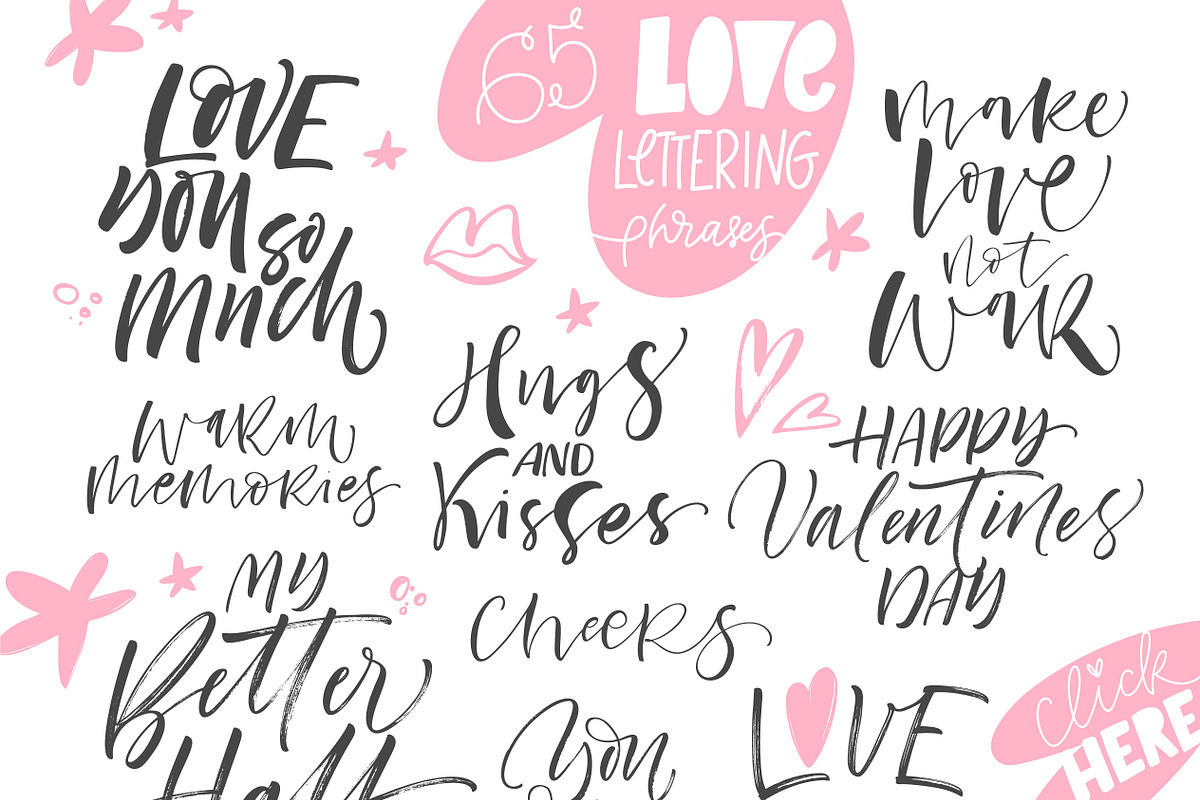 65 LOVE
LETTERING
phrases
LOVE
you so
much
make
love
not
WaR
Hugs
AND
Kisses
WaRm
memoRies
HAPPY
Valentines
DAY
MY
Better
Half
CheeRs
You
LOVE
click
HERE